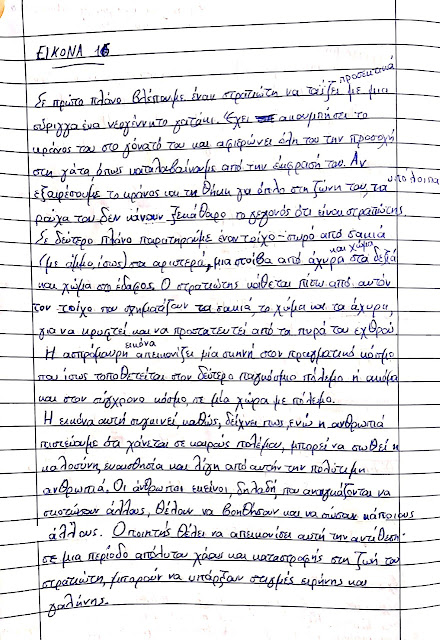 ΕΙΚΟΝΑ 16
Σε πρώτο πλάνο βλέπουμε έναν στρατιώτη να ταΐζει προσεκτικά με μια
σύριγγα ένα νεογέννητο γατάκι. Έχει ακουμπήσει το
κράνος του στο γόνατό του και αφιερώνει όλη του την προσοχή
στη γάτα, όπως καταλαβαίνουμε από την έκφρασή του. Αν
εξαιρέσουμε το κράνος και τη θήκη για όπλο στη ζώνη του, τα υπόλοιπα
ρούχα του δεν κάνουν ξεκάθαρο το γεγονός ότι είναι στρατιώτης
Σε δεύτερο πλάνο παρατηρούμε έναν τοίχο - σωρό από σακιά
(με άμμο, ίσως) πα αριστερά, μια στοίβα από άχυρα και χώμα στα δεξιά
και χώμα στο έδαφος. Ο στρατιώτης κάθεται πίσω από αυτόν
τον τοίχο που σχηματίζουν τα σακιά, το χώμα και τα άχυρα,
για να κρυφτεί και να προστατευτεί από τα πυρά του εχθρού.
Η ασπρόμαυρη εικόνα απεικονίζει μία σκηνή στον πραγματικό κόσμο
που ίσως τοποθετείται στον δεύτερο παγκόσμιο πόλεμο ή ακόμα
και στον σύγχρονο κόσμο, σε μία χώρα με πόλεμο.
Η εικόνα αυτή συγκινεί, καθώς, δείχνει πως, ενώ η ανθρωπιά
πιστεύουμε ότι χάνεται σε καιρούς πολέμου, μπορεί να σωθεί η
καλοσύνη, ευαισθησία και λίγη από αυτήν την πολύτιμη
ανθρωπιά. Οι άνθρωποι εκείνοι, δηλαδή που αναγκάζονται να
σκοτώσουν άλλους, θέλουν να βοηθήσουν και να σώσουν κάποιους
άλλους. Ο ποιητής θέλει να απεικονίσει αυτή την αντίθεση·
σε μια περίοδο απόλυτου χάους και καταστροφής στη ζωή του
στρατιώτη, μπορούν να υπάρξουν στιγμές ειρήνης και
γαλήνης.